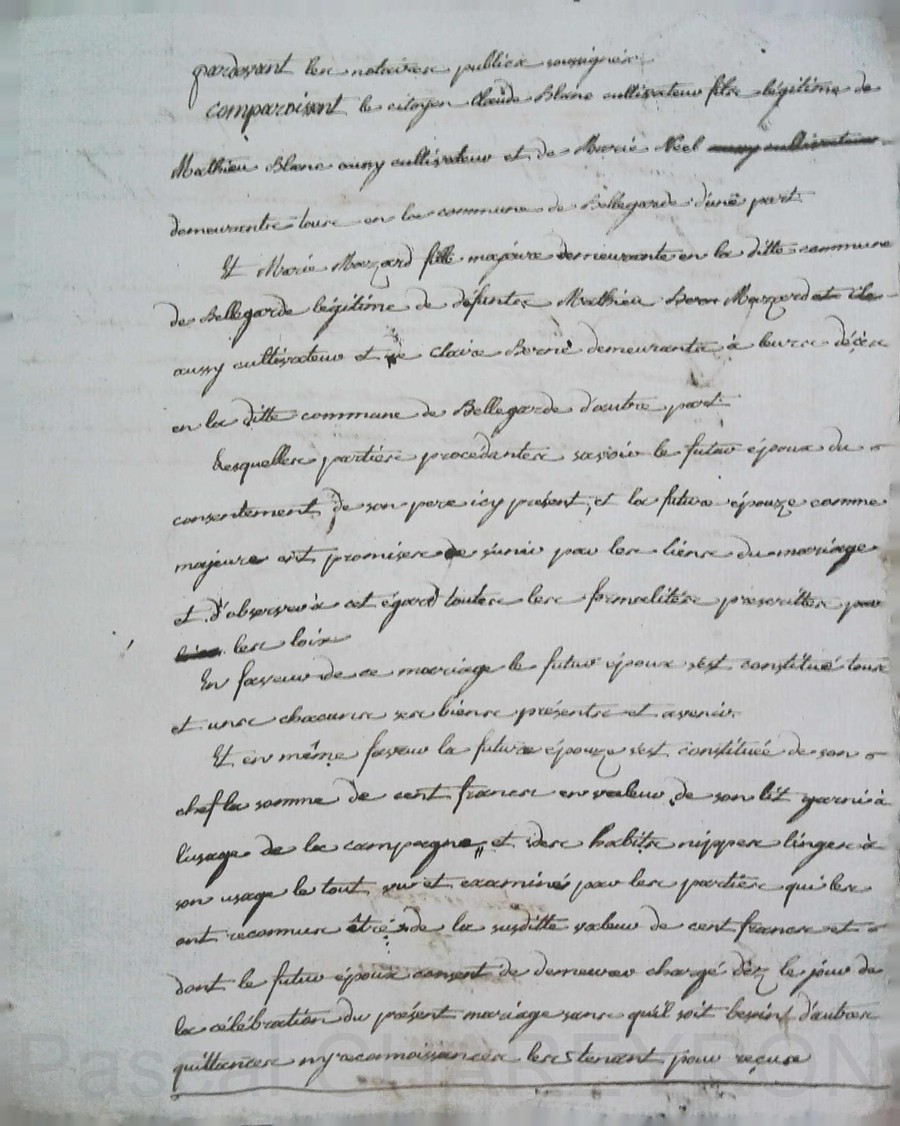 pardevant les notaires publics soussignés
comparoissent le citoyen Claude Blanc cultivateur fils légitime de
Mathieu Blanc aussy cultivateur et de Marie Néel aussy cultivateur
demeurants tous en la commune de Bellegarde d'une part
Et Marie Mazzard fille majeure demeurante en la ditte commune
de Bellegarde légitime de défunts Mathieu Mazzard
aussy cultivateur et de Claire demeurants à leurs décès
en la ditte commune de Bellegarde d'autre part
Lesquelles parties procédantes savoir le futur époux du
consentement de son pere icy présent, et la future épouze comme
majeure ont promises de s'unir par les liens du mariage
et d'observer à cet égard toutes les formalités prescrittes par
les loix
En faveur de ce mariage le futur époux s'est constitué tous
et uns chacuns ses biens présents et avenir
Et en même faveur la future épouze s'est constituée de son
chef la somme de cent francs en valeur de son lit garni à
l'usage de la campagne, et des habits nippes linges à
son usage le tout vu et examiné par les parties qui les
ont reconnus être de la susditte valeur de cent francs et
dont le futur époux consent de demeurer chargé dèz le jour de
la célébration du présent mariage sans qu'il soit besoint d'autres
quittances ny reconnoissances les tenant pour reçus
Pascal CHAREYRON